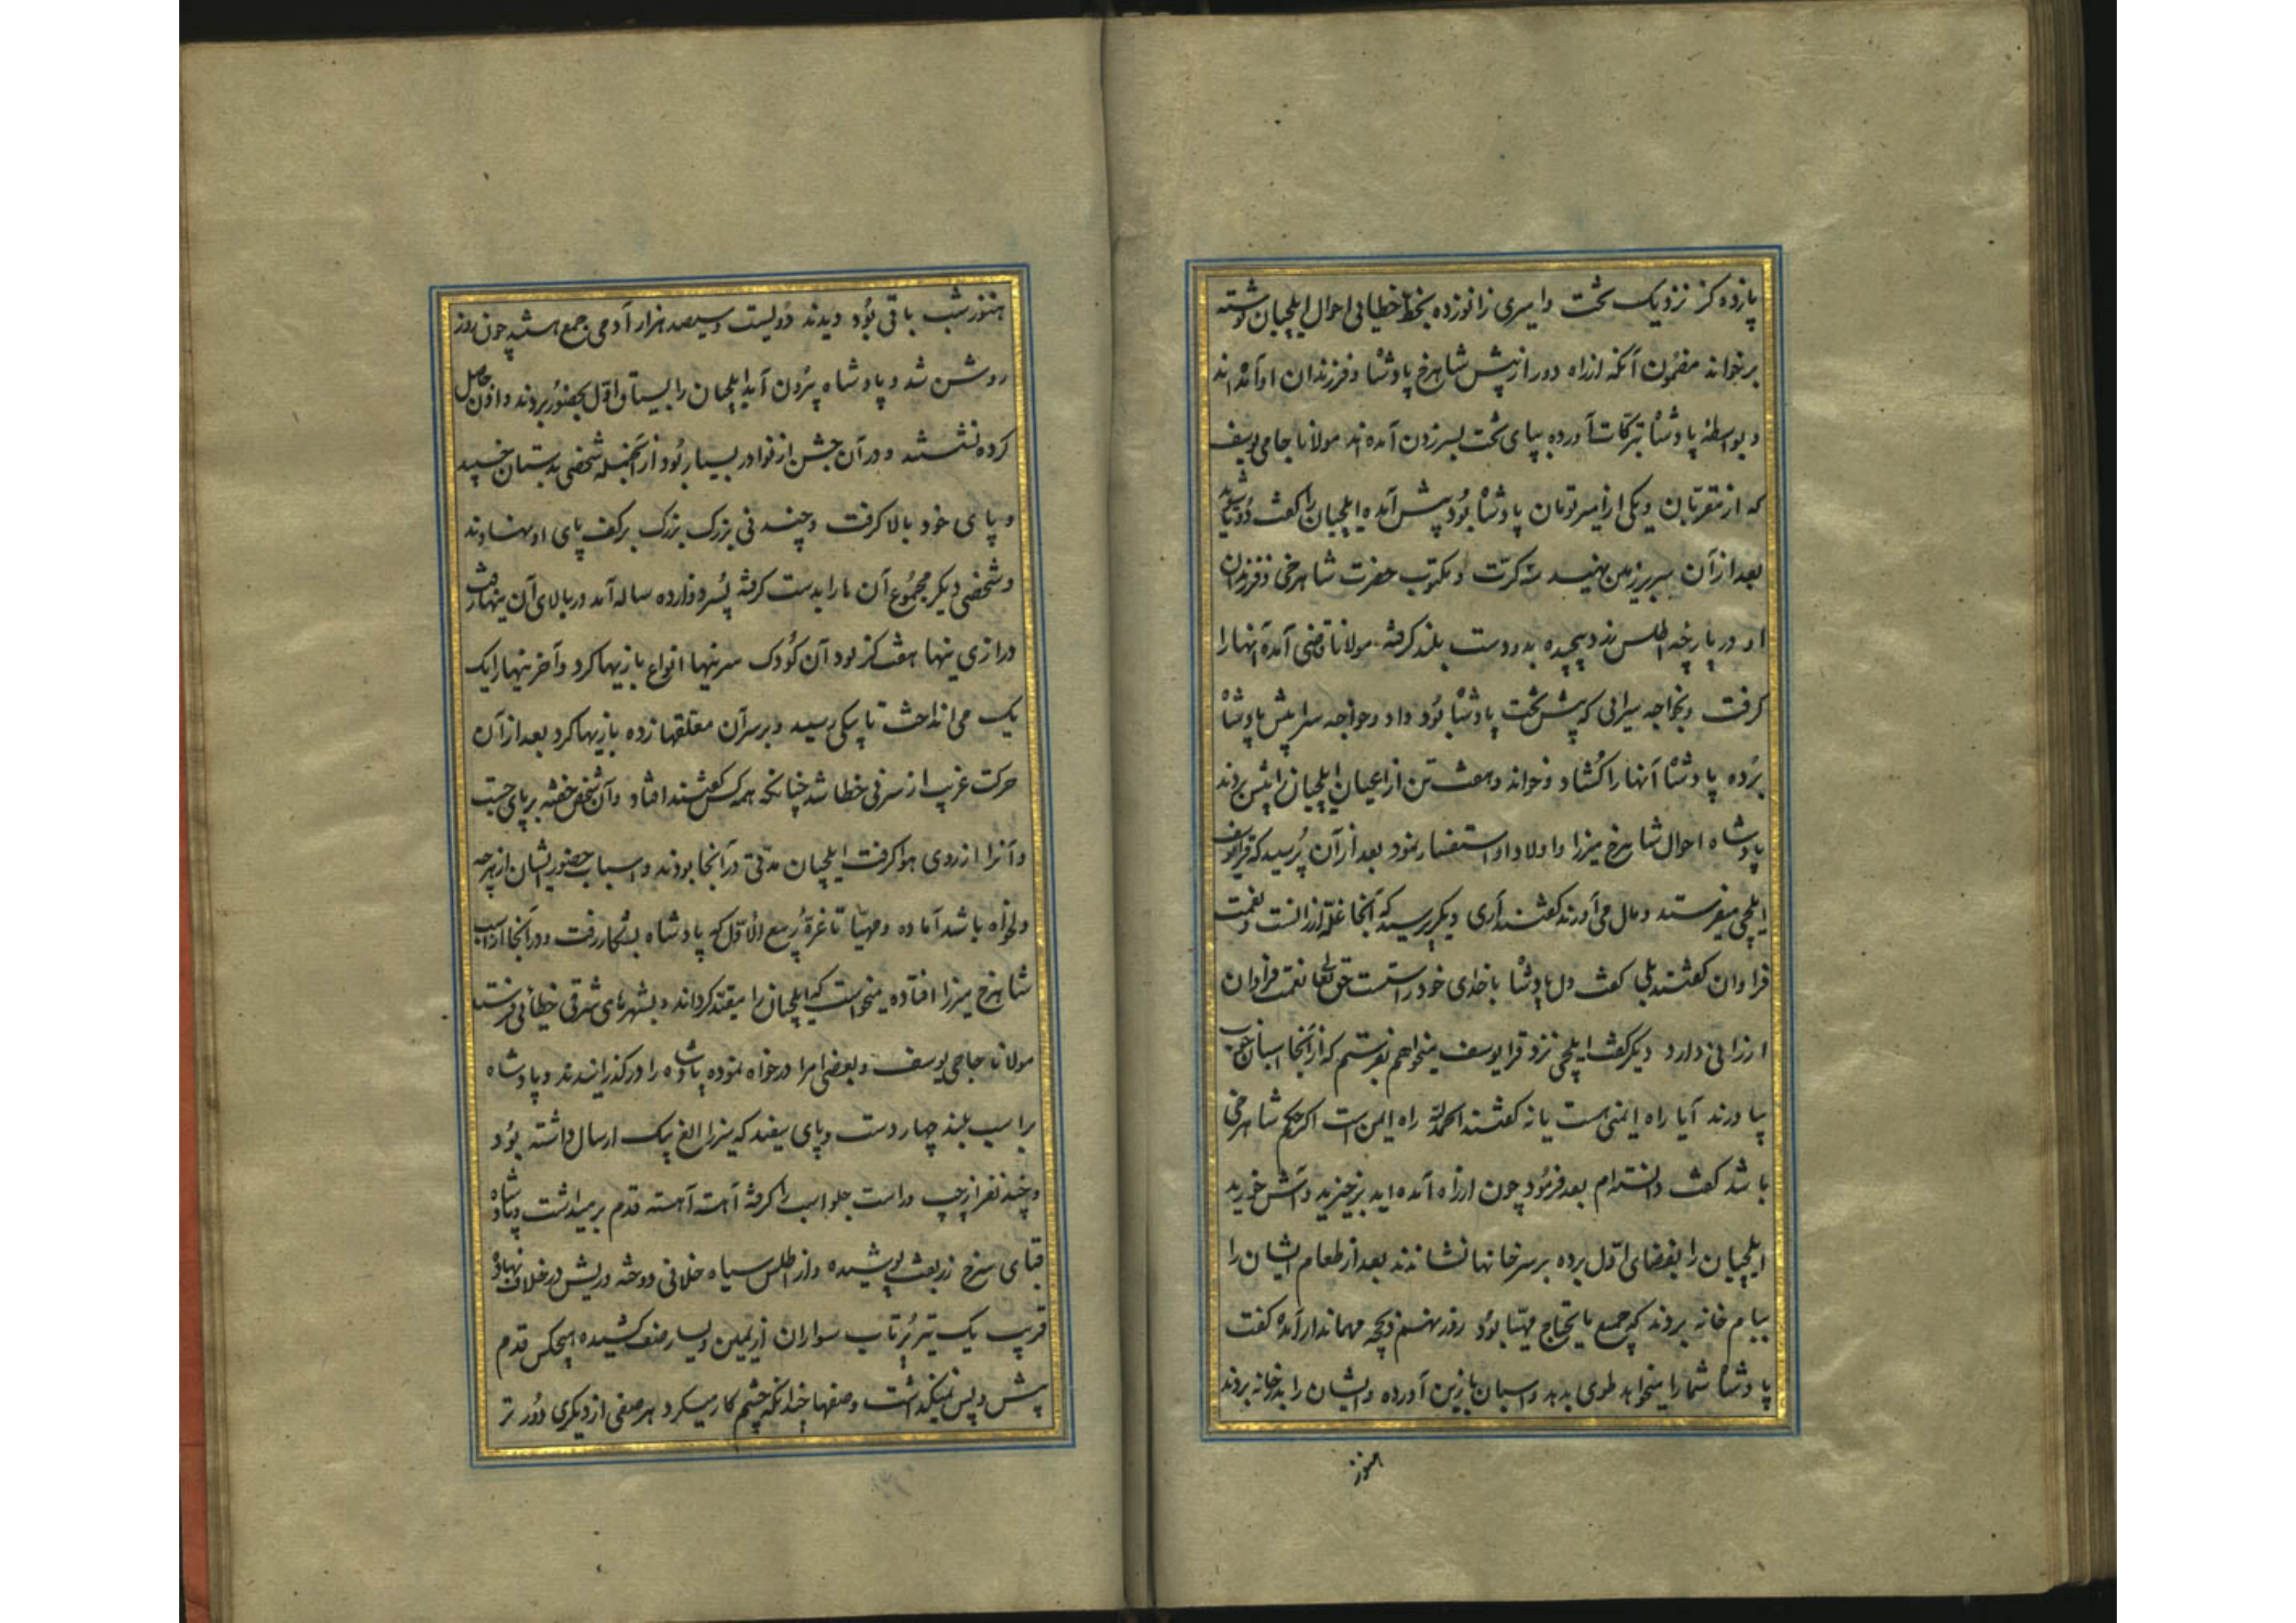 پانزده کز نزدیک تخت و امیری زانو زده بخط خطائی احوال ایلچیان نوشته
برخواند مضمون آنکه از راه دور از پیش شاهرخ پادشاه و فرزندان او آمده اند
و بواسطه پادشاه تبرکات آورده بپای تخت بسر زدن آمده اند مولانا حاجی یوسف
که از مقربان و یکی از امیر تومان پادشاه بود پیش آمده ایلچیان را کفت دوتا شوید
بعد از آن سر بر زمین نهید سه کرت و مکتوب حضرت شاهرخی و فرزندان
او در پارچه اطلس زرد پیچیده بدو دست بلند کرفته مولانا قاضی آمده آنها را
کرفت و بخواجه سرائی که پیش تخت پادشاه بود داد و خواجه سرا پیش پادشاه
برده پادشاه آنها را کشاد و خواند و هفت تن از ایلچیان را پیش بردند
پادشاه احوال شاهرخ میرزا و اولاد او استفسار نمود بعد از آن پرسید که قرا یوسف
ایلچی میفرستد و مال می آورند کفتند آری دیکر پرسید که آنجا غله ارزانست و نعمت
فراوان کفتند بلی کفت دل پادشاه با خدای خود راستست حق تعالی نعمت فراوان
ارزانی دارد دیکر کفت ایلچی نزد قرا یوسف میخواهم بفرستم که از آنجا اسبان خوب
بیاورند آیا راه ایمنی هست یا نه کفتند الحمدلله راه ایمن است اکر حکم شاهرخی
باشد کفت دانسته ام بعد فرمود چون از راه آمده اید برخیزید و آش خورید
ایلچیان را بفضای اول برده بر سر خانها نشاندند بعد از طعام ایشان را
بیام خانه بردند که جمیع مایحتاج مهیا بود روز نهم مهماندار آمده کفت
پادشاه شما را میخواهد طوی بدهد و اسبان با زین آورده و ایشان را بدر خانه بردند
هنوز
هنوز شب باقی بود دیدند دویست و سیصد هزار آدمی جمع چون روز
روشن شد و پادشاه بیرون آمد ایلچیان را بحضور بردند و اذن حاصل
کرده نشستند و در آن جشن از نوادر بسیار بود از آنجمله شخصی بدستان خسپید
و پای خود بالا کرفت و چند نی بزرک بزرک بر کف پای او نهادند
و شخصی دیکر مجموع آن ها را بدست کرفته پسر دوازده ساله آمد و ببالای آن نیها رفت
درازی نیها هفت کز بود آن کودک سر نیها انواع بازیها کرد و آخر نیها را یک
یک می انداخت تا بیکی رسید و بر سر آن معلقها زده بازیها کرد بعد از آن
حرکت غریب از سر نی خطا شد چنانکه همه کس کفتند افتاد و آن شخص خفته بر پای جست
و آنرا از روی هوا کرفت ایلچیان مدتی در آنجا بودند و اسباب حضور ایشان از هر چه
دلخواه باشد آماده و مهیا تا غره ربیع الاول که پادشاه بشکار رفت و در آنجا از اسب
شاهرخ میرزا افتاده میخواست که ایلچیان را مقید کرداند و بشهرهای شرقی خطائی فرستد
مولانا حاجی یوسف و بعضی امرا درخواه نموده پادشاه را در کذرانیدند و پادشاه
بر اسب بلند چهار دست و پای سفید که میرزا الغ بیک ارسال داشته بود
و چند نفر از چپ و راست جلو اسب را کرفته آهسته آهسته قدم بر میداشت و پادشاه
قبای سرخ زربفت پوشیده و از اطلس سیاه غلافی دوخته و ریش در غلاف نهاده
قریب یک تیر پرتاب سواران از یمین و یسار صف کشیده هیچکس قدم
پیش و پس نمیکذاشت و صفها چندانکه چشم کار میکرد هر صفی از دیکری دور تر